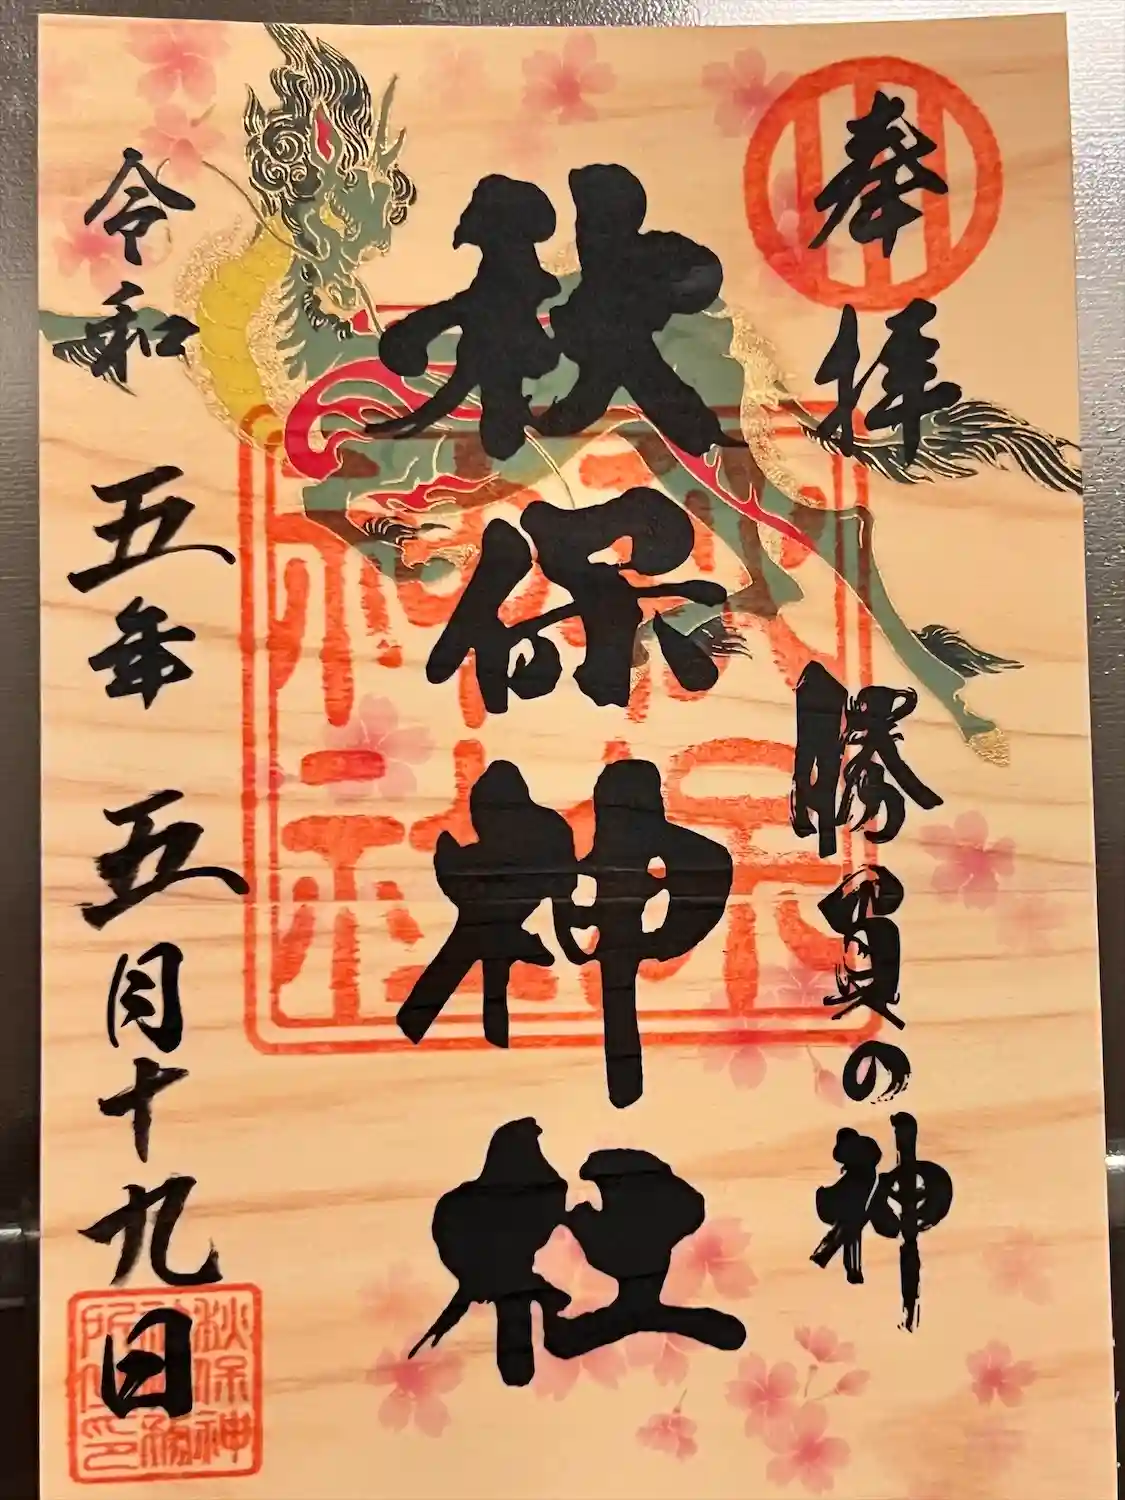 奉拝
勝負の神
秋保神社
令和五年五月十九日
秋保神社
秋保神